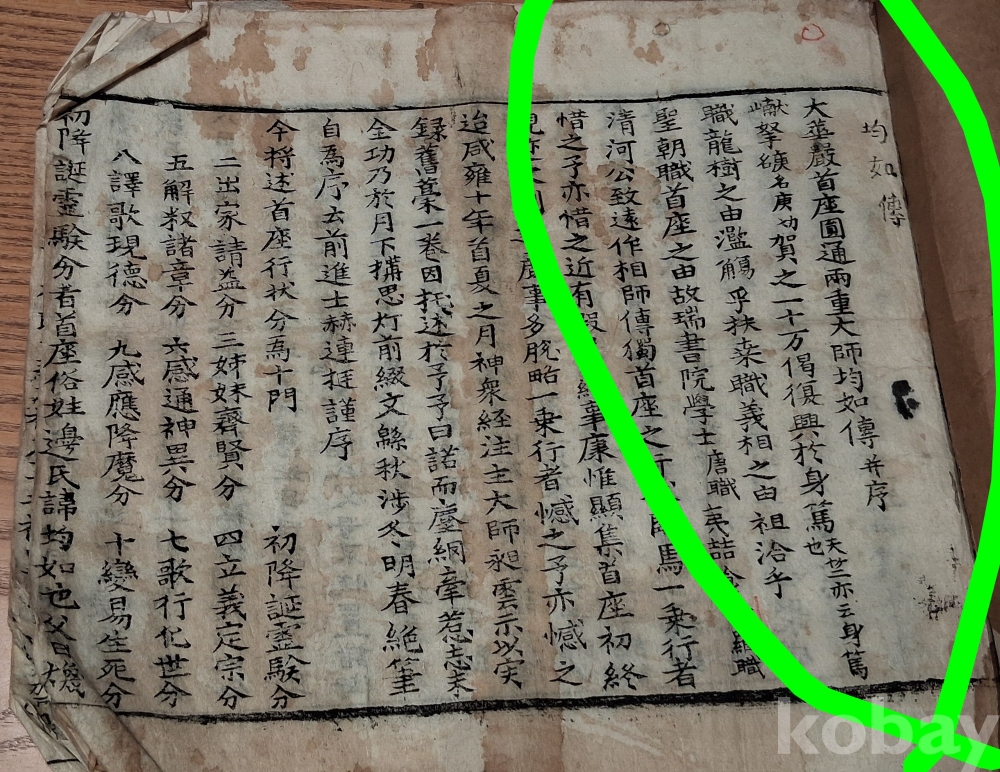 均如傳
大華嚴首座圓通兩重大師均如傳 并序
之一十万偈復興於身篤 天竺亦云身篤也
職龍樹之由濫觴乎扶桒職義相之由祖洽乎
聖朝職首座之由故瑞書院學士
清河公致遠作相師傳獨首座之行 一乘行者
惜之予亦惜之近有 康惟顯集首座初終
事多脫略一乘行者憾之予亦憾之
迨咸雍十年首夏之月神衆経注主大師昶雲示以实
録舊藁一卷因托述於予予曰諾而塵綱牽惹志未
全功乃於月下搆思灯前綴文緜秋涉冬明春絶筆
自爲序云前進士赫連挺謹序
今將述首座行状分爲十門 初降誕霊驗分
二出家請益分 三姊妹齊賢分 四立義定宗分
五解釈諸章分 六感通神異分 七歌行化世分
八譯歌現德分 九感應降魔分 十變易生死分
初降誕霊驗分者首座俗姓邊氏諱均如也父曰
kobay